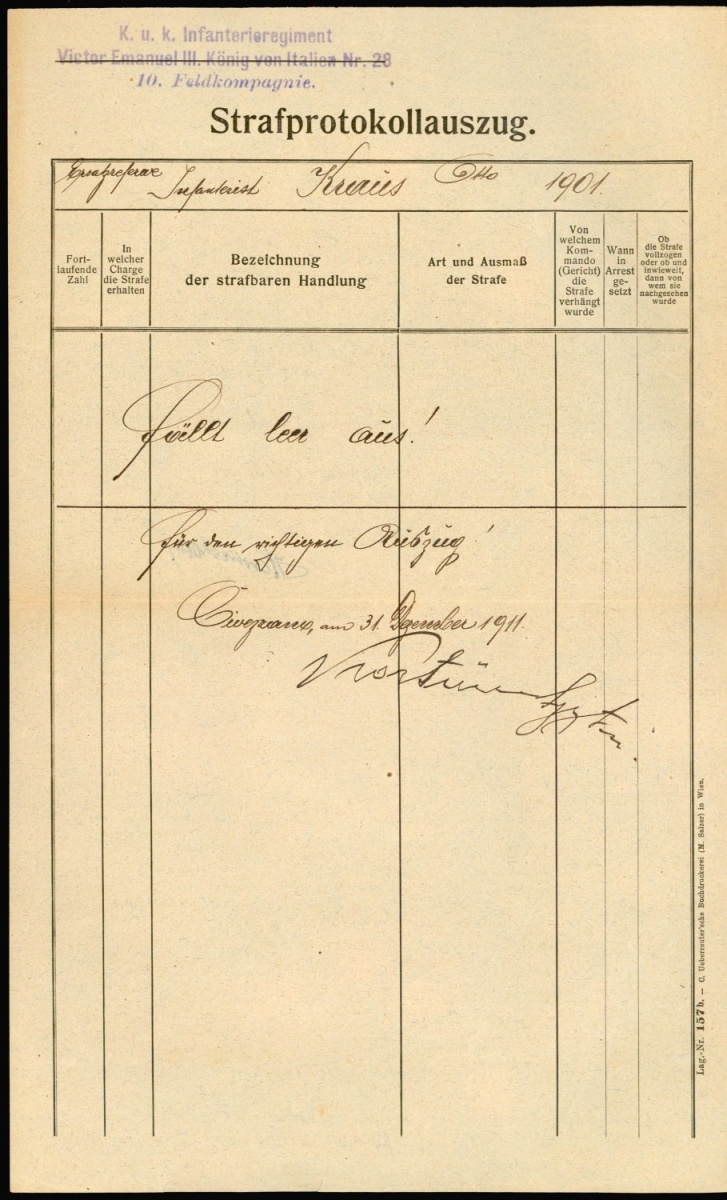 K. u. k. Infanterieregiment
Victor Emanuel III. König von Italien Nr. 28
10. Feldkompagnie.
Strafprotokollauszug.
Ersatzreserve Infanterist Kraus Otto 1901.
Fort-
laufende
Zahl
In
welcher
Charge
die Strafe
erhalten
Bezeichnung
der strafbaren Handlung
Art und Ausmaß
der Strafe
Von
welchem
Kom-
mando
(Gericht)
die
Strafe
verhängt
wurde
Wann
in
Arrest
ge-
setzt
Ob
die Strafe
vollzogen
oder ob und
inwieweit,
dann von
wem sie
nachgesehen
wurde
fällt leer aus!
für den richtigen Auszug!
am 31. Dezember 1911.
Lag.-Nr. 157b. — C. Ueberreuter'sche Buchdruckerei (M. Salzer) in Wien.